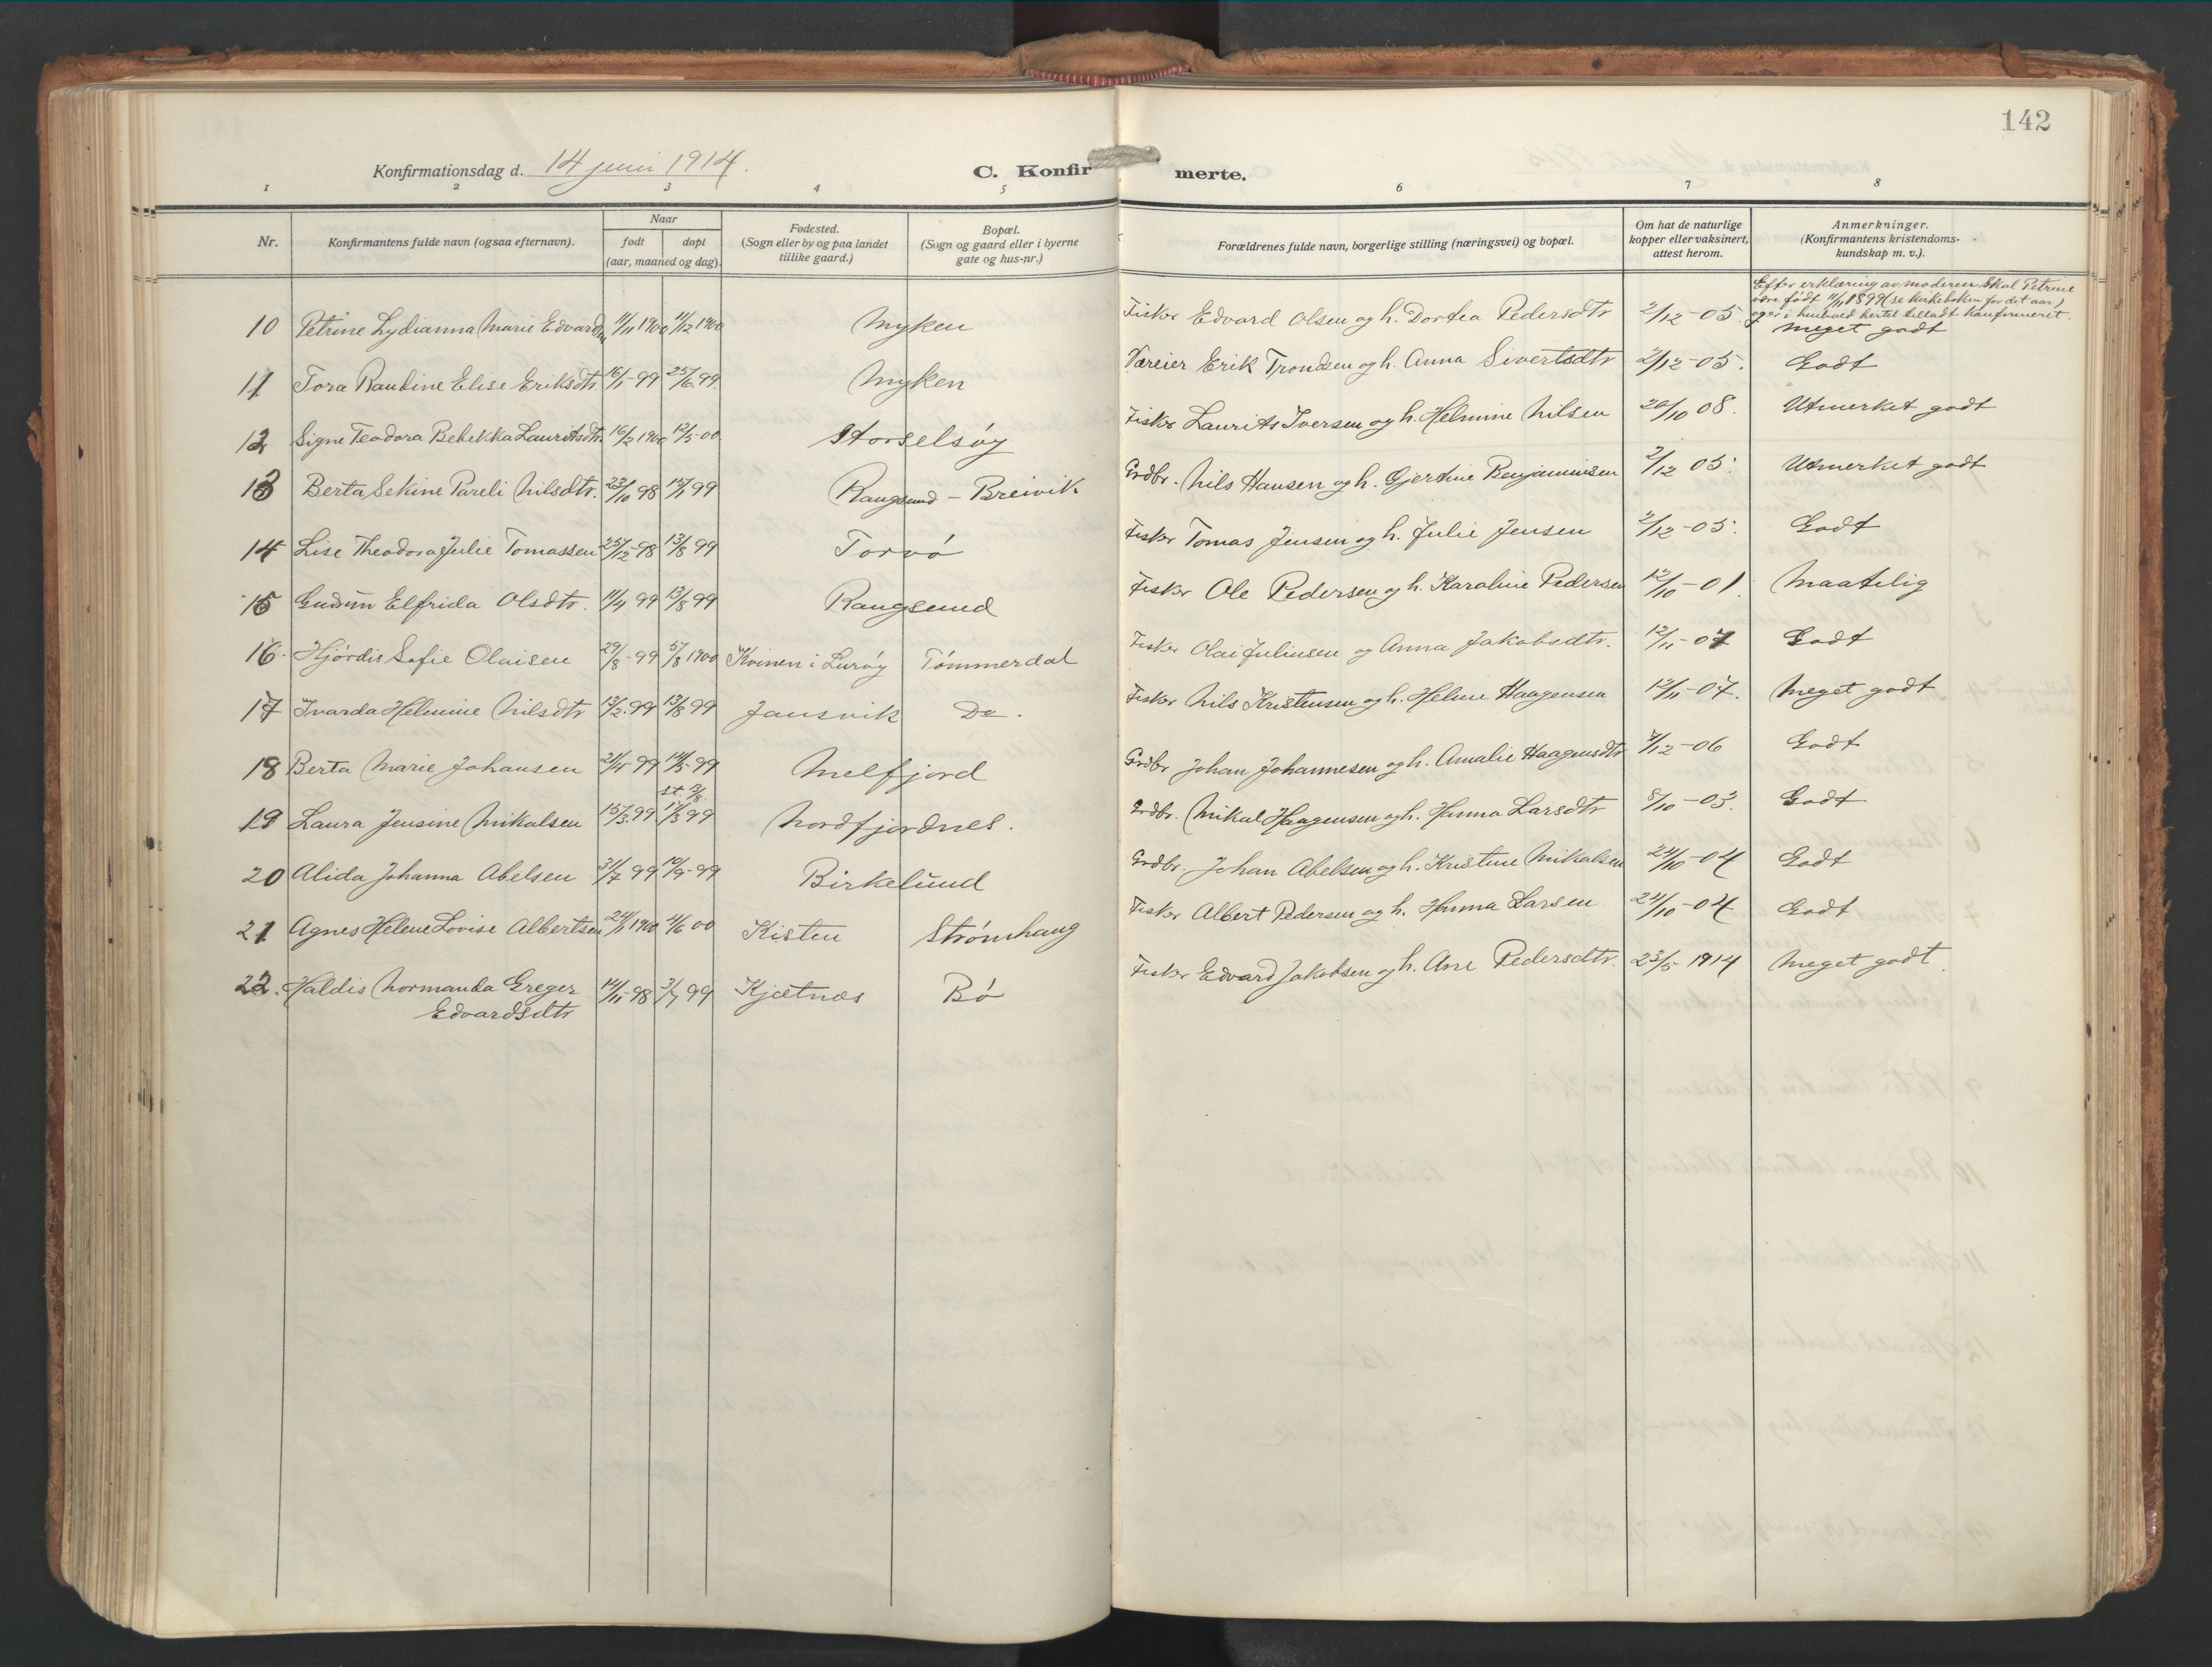 142
Konfirmationsdag d. 14 juni 1914.
C. Konfirmerte.
1 2 3 4 5 6 7 8
Nr.
Konfirmantens fulde navn (ogsaa efternavn).
Naar
født døpt
(aar, maaned og dag).
Fødested.
(Sogn eller by og paa landet
tillike gaard.)
Bopæl.
(Sogn og gaard eller i byerne
gate og hus-nr.)
Forældrenes fulde navn, borgerlige stilling (næringsvei) og bopæl.
Om hat de naturlige
kopper eller vaksinert,
attest herom.
Anmerkninger.
(Konfirmantens kristendoms-
kundskap m. v.).
Efter erklæring av moderen skal Petrine
være født 11/11 1899 (se kirkeboken for det aar)
og er i henhold hertil tilladt konfirmeret.
10 Petrine Lydianna Marie Edvardsdtr 11/11 1900 11/12 1900 Myken Fisker Edvard Olsen og h. Dortea Pedersdtr 2/12-05 Meget godt
11 Tora Randine Elise Eriksdtr. 16/1-99 25/6 99. Myken Væreier Erik Trondsen og h. Anna Sivertsdtr 2/12-05. Godt
12 Signe Teodora Bebekka Lauritsdtr. 16/2 1900 12/5-00 Storselsøy Fisker Laurits Iversen og h. Helmine Nilsen 20/10 08. Utmerket godt
13 Berta Sekine Pareli Nilsdtr. 23/10 98 15/1 99 Rangsund - Breivik Grdbr. Nils Hansen og h. Gjertine Benjaminsen 2/12 05. Utmerket godt
14 Lise Theodora Julie Tomassen 25/12-98 13/8 99 Torvø Fisker Tomas Jensen og h. Julie Jensen 2/12-05. Godt
15 Gudrun Elfrida Olsdtr. 11/4 99 13/8 99 Rangsund Fisker Ole Pedersen og h. Karoline Pedersen 12/10-01. Maatelig
16. Hjørdis Sofie Olaisen 29/8-99 5/8 1900 Kvinen i Lurøy Tømmerdal Fisker Olai Juliussen og Anna Jakobsdtr. 12/11-07 Godt
17 Ivarda Helmine Nilsdtr 13/2-99 13/8 99 Jansvik Do. Fisker Nils Kristensen og h. Heline Haagensen 12/11-07. Meget godt
18 Berta Marie Johansen 21/4-99 14/5-99 Melfjord Grdbr Johan Johannesen og h. Amalie Haagensdtr 7/12-06 Godt
st. 9/8.
19 Laura Jensine Mikalsen 15/3.99. 17/3 99 Nordfjordnes. Grdbr. Mikal Haagensen og h. Hanna Larsdtr 8/10-03. Godt
20 Alida Johanna Abelsen 31/7 99 10/9-99 Birkelund Grdbr. Johan Abelsen og h. Kristine Mikalsen 24/10-04 Godt
21 Agnes Helene Lovise Albertsen 24/1 1900 4/6 00 Kisten Strømhaug Fisker Albert Pedersen og h. Hanna Larsen 24/10-04 Godt
22. Haldis Normanda Greger 14/11-98 3/7 99 Kjætnæs Bø Fisker Edvard Jakobsen og h. Ane Pedersdtr. 23/5 1914 Meget godt.
Edvardsdtr